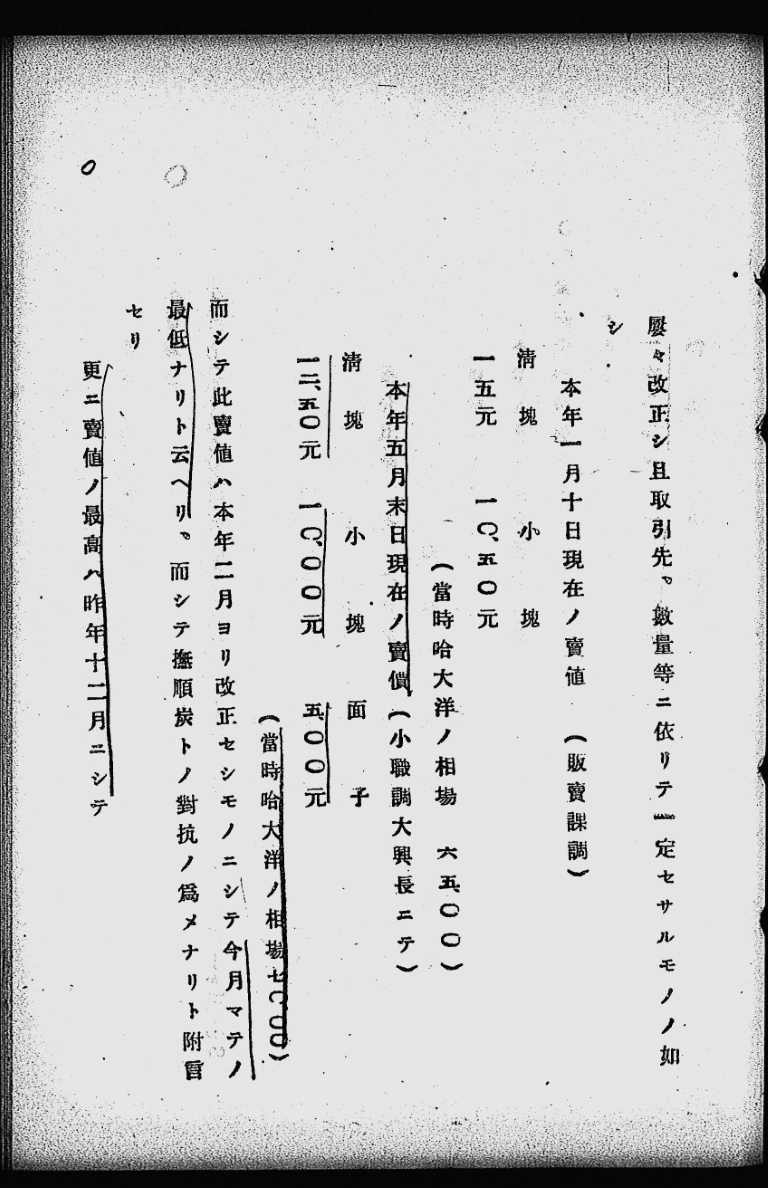 屡々改正シ且取引先。數量等ニ依リテ一定セサルモノノ如
シ
本年一月十日現在ノ賣値 (販賣課調)
淸塊 小塊
一五元 一〇、五〇元
(當時哈大洋ノ相場 六五、〇〇)
本年五月末日現在ノ賣價(小職調大興長ニテ)
淸塊 小塊 面子
一二、五〇元 一〇、〇〇元 五、〇〇元
(當時哈大洋ノ相場七〇、〇〇)
而シテ此賣値ハ本年二月ヨリ改正セシモノニシテ今月マテノ
最低ナリト云ヘリ。而シテ撫順炭トノ對抗ノ爲メナリト附言
セリ
更ニ賣値ノ最高ハ昨年十二月ニシテ